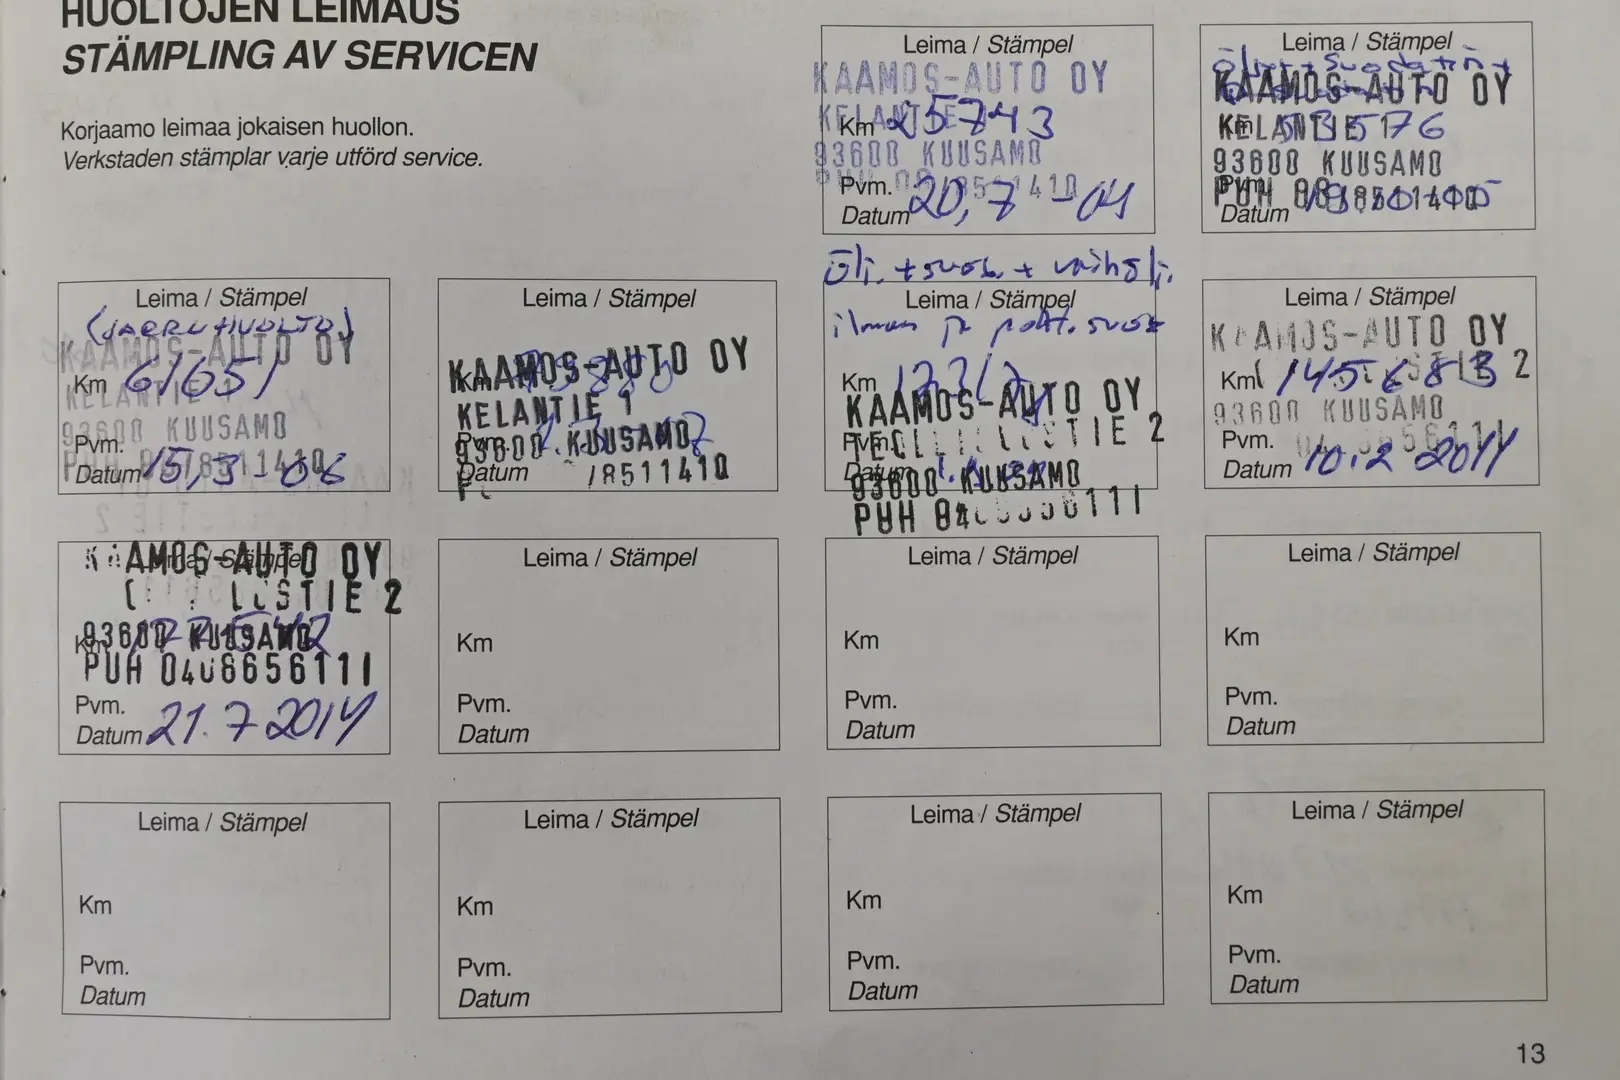 HUOLTOJEN LEIMAUS
STÄMPLING AV SERVICEN
Korjaamo leimaa jokaisen huollon.
Verkstaden stämplar varje utförd service.
Leima / Stämpel
KAAMOS-AUTO OY
KELANTIE
Km 25743
93600 KUUSAMO
PUH 08 8511410
Pvm.
Datum 20,7-04
Leima / Stämpel
KAAMOS-AUTO OY
KELANTIE 1
Km 53576
93600 KUUSAMO
PUH 08 8511410
Pvm.
Datum
Leima / Stämpel
(JARRUHUOLTO)
KAAMOS-AUTO OY
Km 61651
KELANTIE 1
93600 KUUSAMO
Pvm.
PUH 08/8511410
Datum 15,3-06
Leima / Stämpel
KAAMOS-AUTO OY
Km
KELANTIE 1
Pvm.
93600 KUUSAMO
Datum
/8511410
Öli. + suod. + vaihöli.
Leima / Stämpel
ilman ja polt. suod
Km
KAAMOS-AUTO OY
Pvm.
TIE 2
Datum
93600 KUUSAMO
PUH
Leima / Stämpel
KAAMOS-AUTO OY
Km 145683
STIE 2
93600 KUUSAMO
Pvm.
Datum 10.2 2014
KAAMOS-AUTO OY
Leima / Stämpel
STIE 2
93600 KUUSAMO
Km
PUH 0408656111
Pvm.
Datum 21.7 2014
Leima / Stämpel
Km
Pvm.
Datum
Leima / Stämpel
Km
Pvm.
Datum
Leima / Stämpel
Km
Pvm.
Datum
Leima / Stämpel
Km
Pvm.
Datum
Leima / Stämpel
Km
Pvm.
Datum
Leima / Stämpel
Km
Pvm.
Datum
Leima / Stämpel
Km
Pvm.
Datum
13